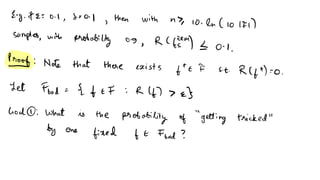 E.g. if ε = 0.1, δ = 0.1, then with n ≥ 10·ln(10|F|)
samples, with probability 0.9, R(f_S^{ERM}) ≤ 0.1.
Proof: Note that there exists f* ∈ F s.t. R(f*) = 0.
Let F_bad = { f ∈ F : R(f) > ε}
Goal ①: What is the probability of "getting tricked"
by one fixed f ∈ F_bad ?